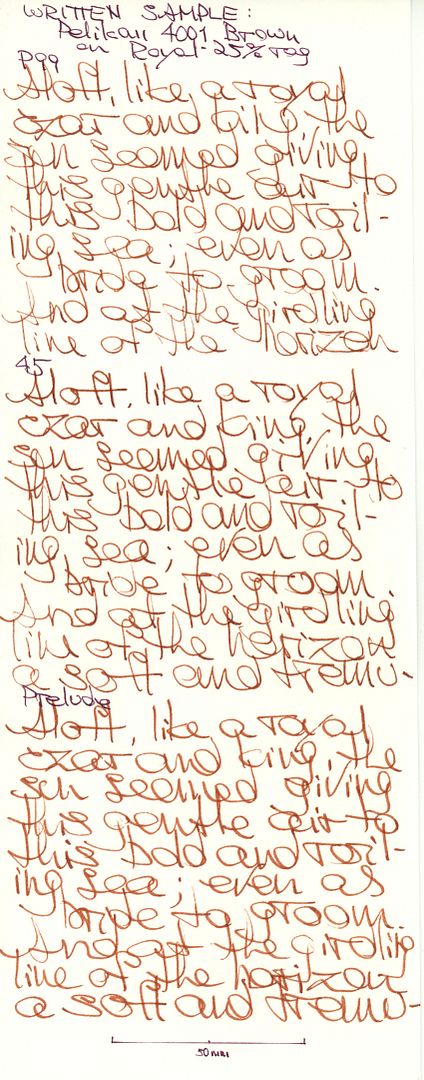 WRITTEN SAMPLE:
Pelikan 4001 Brown
on Royal-25% rag
P99
Aloft, like a royal
czar and king, the
sun seemed giving
this gentle air to
this bold and roil-
ing sea; even as
bride to groom.
And at the girdling
line of the horizon
45
Aloft, like a royal
czar and king, the
sun seemed giving
this gentle air to
this bold and roil-
ing sea; even as
bride to groom.
And at the girdling
line of the horizon
a soft and tremu-
Prelude
Aloft, like a royal
czar and king, the
sun seemed giving
this gentle air to
this bold and roil-
ing sea; even as
bride to groom.
And at the girdling
line of the horizon
a soft and tremu-
50 mm